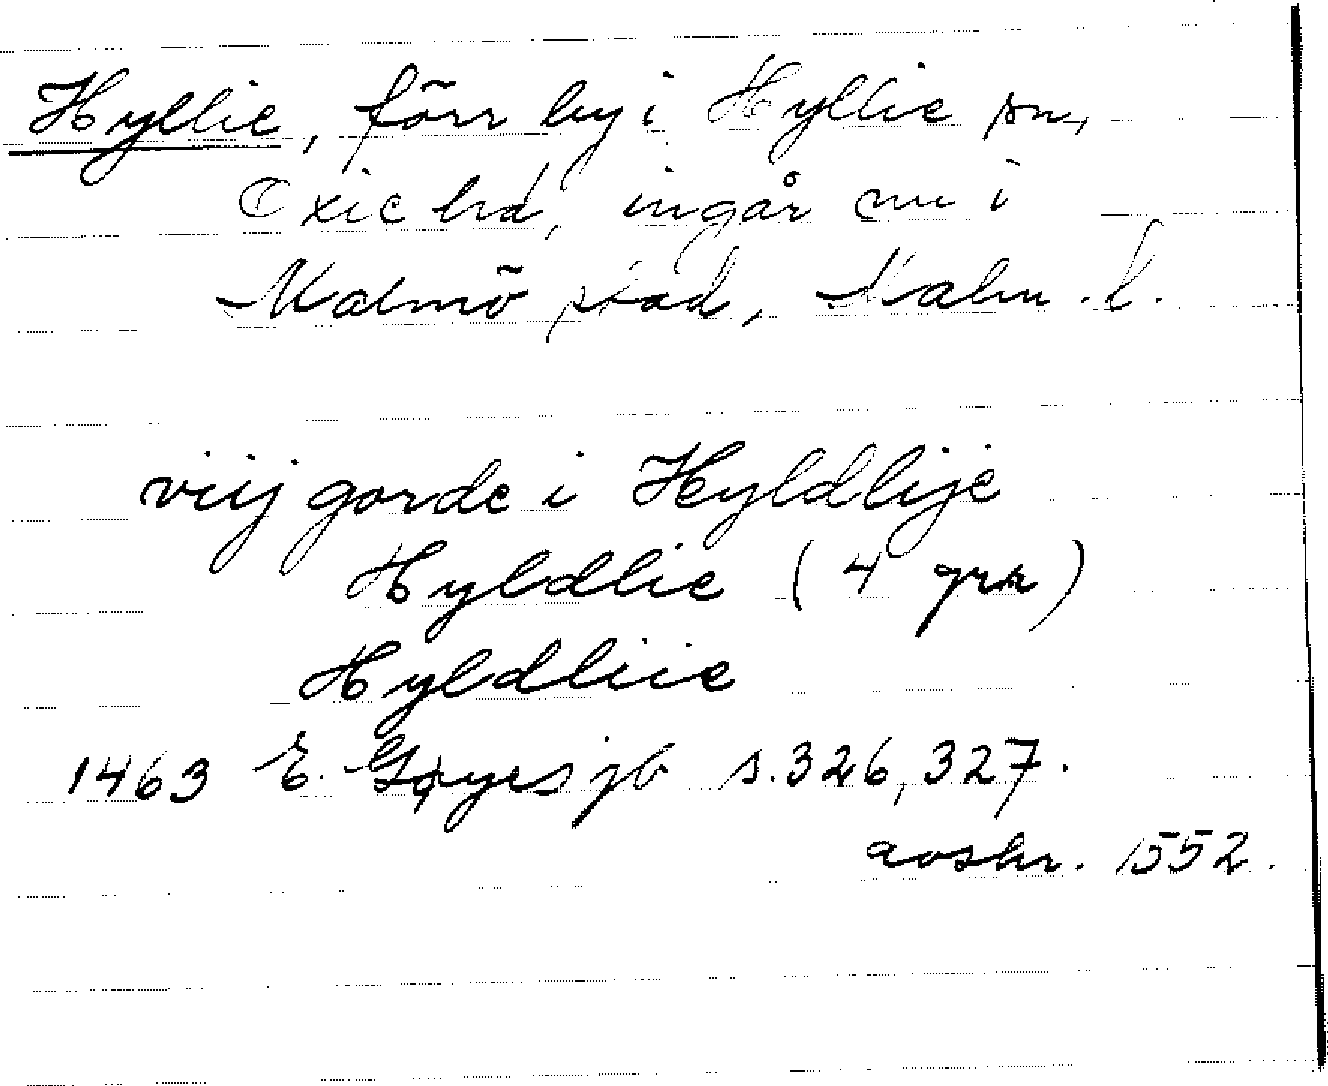 Hyllie, förr by i Hyllie sn,
Oxie hd, ingår nu i
Malmö stad, Malm. l.
viij gorde i Hyldlije
Hyldlie (4 grr)
Hyldliie
1463 E. Gøyes jb s. 326, 327.
avskr. 1552.